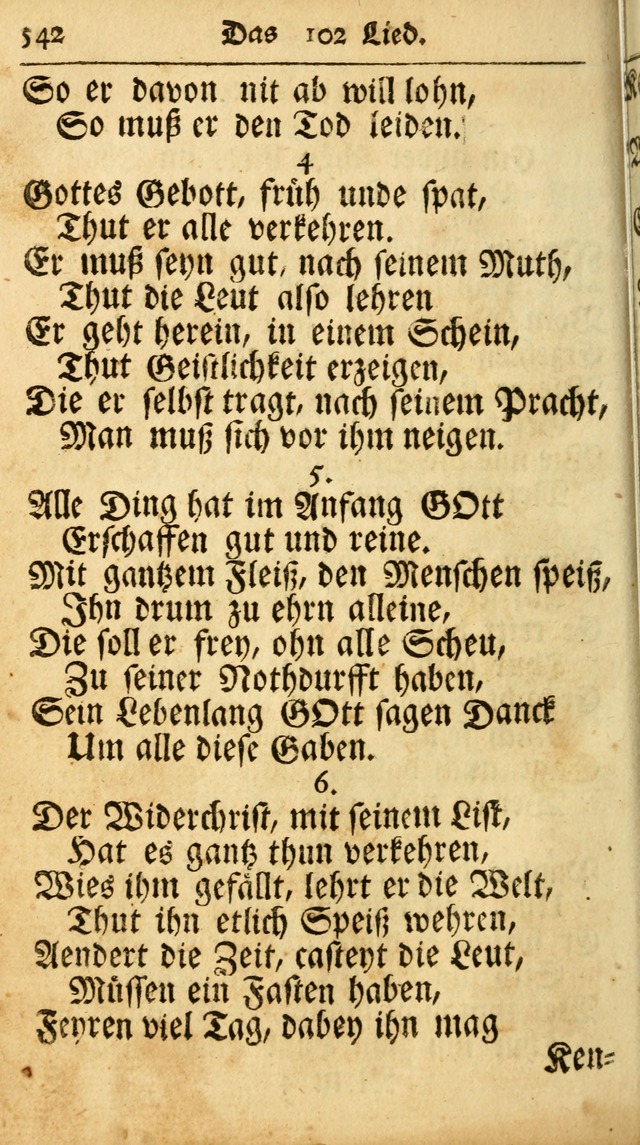 542 Das 102 Lied.
So er davon nit ab will lohn,
So muß er den Tod leiden.
4
Gottes Gebott, früh unde spat,
Thut er alle verkehren.
Er muß seyn gut, nach seinem Muth,
Thut die Leut also lehren
Er geht herein, in einem Schein,
Thut Geistlichkeit erzeigen,
Die er selbst tragt, nach seinem Pracht,
Man muß sich vor ihm neigen.
5.
Alle Ding hat im Anfang GOtt
Erschaffen gut und reine.
Mit gantzem Fleiß, den Menschen speiß,
Ihn drum zu ehrn alleine,
Die soll er frey, ohn alle Scheu,
Zu seiner Nothdurfft haben,
Sein Lebenlang GOtt sagen Danck
Um alle diese Gaben.
6.
Der Widerchrist, mit seinem List,
Hat es gantz thun verkehren,
Wies ihm gefällt, lehrt er die Welt,
Thut ihn etlich Speiß wehren,
Aendert die Zeit, casteyt die Leut,
Müssen ein Fasten haben,
Feyren viel Tag, dabey ihn mag
Ken-